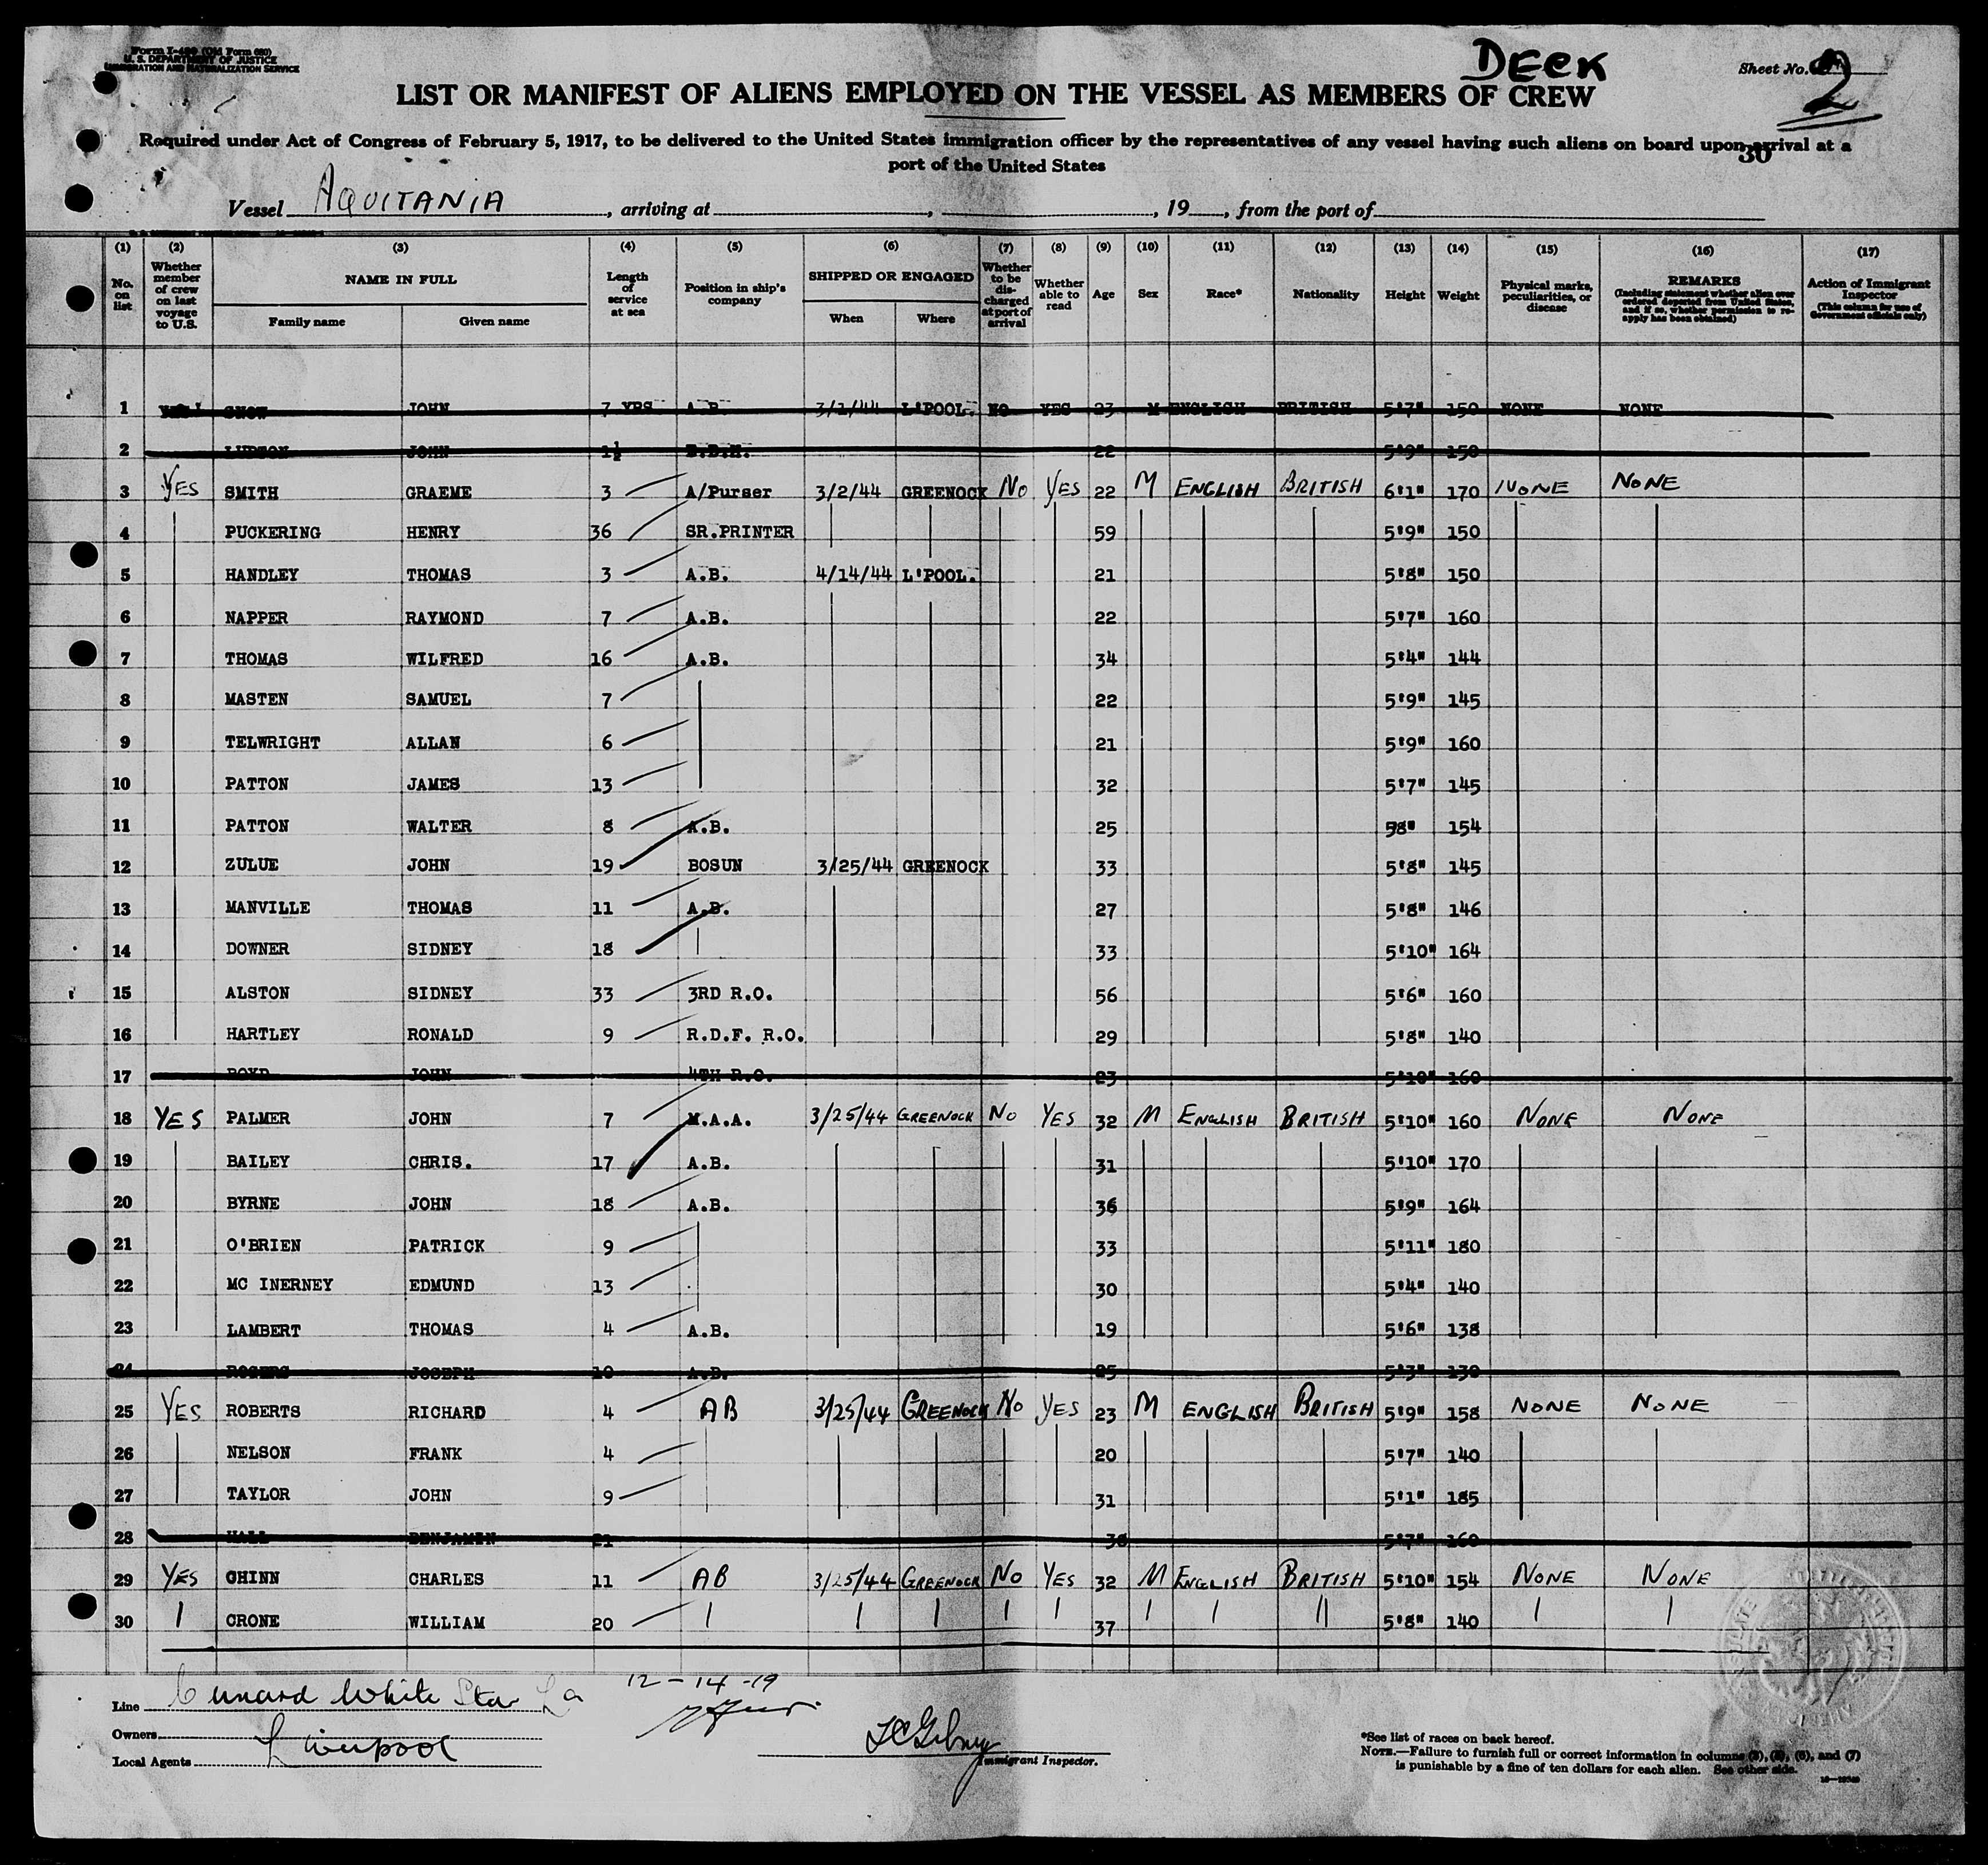 Form I-489 (Old Form 680)
U. S. DEPARTMENT OF JUSTICE
IMMIGRATION AND NATURALIZATION SERVICE
DECK
Sheet No. 2
LIST OR MANIFEST OF ALIENS EMPLOYED ON THE VESSEL AS MEMBERS OF CREW
Required under Act of Congress of February 5, 1917, to be delivered to the United States immigration officer by the representatives of any vessel having such aliens on board upon arrival at a
port of the United States
30
Vessel AQUITANIA, arriving at , , 19 , from the port of
(1) (2) (3) (4) (5) (6) (7) (8) (9) (10) (11) (12) (13) (14) (15) (16) (17)
No. on list Whether member of crew on last voyage to U.S. NAME IN FULL Family name Given name Length of service at sea Position in ship's company SHIPPED OR ENGAGED When Where Whether to be discharged at port of arrival Whether able to read Age Sex Race* Nationality Height Weight Physical marks, peculiarities, or disease REMARKS (Including statement whether alien ever ordered deported from United States, and if so, whether permission to re-apply has been obtained) Action of Immigrant Inspector (This column for use of Government officials only)
1 SNOW JOHN 7 YRS A.B. 3/1/44 L'POOL. NO YES 23 M ENGLISH BRITISH 5'7" 150 NONE NONE
2 LUDSON JOHN 1½ 22 5'9" 150
3 YES SMITH GRAEME 3 A/Purser 3/2/44 GREENOCK NO YES 22 M ENGLISH BRITISH 6'1" 170 NONE NONE
4 PUCKERING HENRY 36 SR.PRINTER 59 5'9" 150
5 HANDLEY THOMAS 3 A.B. 4/14/44 L'POOL. 21 5'8" 150
6 NAPPER RAYMOND 7 A.B. 22 5'7" 160
7 THOMAS WILFRED 16 A.B. 34 5'4" 144
8 MASTEN SAMUEL 7 22 5'9" 145
9 TELWRIGHT ALLAN 6 21 5'9" 160
10 PATTON JAMES 13 32 5'7" 145
11 PATTON WALTER 8 A.B. 25 58" 154
12 ZULUE JOHN 19 BOSUN 3/25/44 GREENOCK 33 5'8" 145
13 MANVILLE THOMAS 11 A.B. 27 5'8" 146
14 DOWNER SIDNEY 18 33 5'10" 164
15 ALSTON SIDNEY 33 3RD R.O. 56 5'6" 160
16 HARTLEY RONALD 9 R.D.F. R.O. 29 5'8" 140
17 BOYD JOHN 4TH R.O. 23 5'10" 160
18 YES PALMER JOHN 7 M.A.A. 3/25/44 GREENOCK NO YES 32 M ENGLISH BRITISH 5'10" 160 NONE NONE
19 BAILEY CHRIS. 17 A.B. 31 5'10" 170
20 BYRNE JOHN 18 A.B. 36 5'9" 164
21 O'BRIEN PATRICK 9 33 5'11" 180
22 MC INERNEY EDMUND 13 30 5'4" 140
23 LAMBERT THOMAS 4 A.B. 19 5'6" 138
24 ROGERS JOSEPH 10 A.B. 25 5'3" 130
25 YES ROBERTS RICHARD 4 AB 3/25/44 GREENOCK NO YES 23 M ENGLISH BRITISH 5'9" 158 NONE NONE
26 NELSON FRANK 4 20 5'7" 140
27 TAYLOR JOHN 9 31 5'1" 185
28 HALL BENJAMIN 21 38 5'7" 160
29 YES GHINN CHARLES 11 AB 3/25/44 GREENOCK NO YES 32 M ENGLISH BRITISH 5'10" 154 NONE NONE
30 CRONE WILLIAM 20 37 5'8" 140
Line Cunard White Star
12-14-19
Owners
Local Agents Liverpool
Immigrant Inspector.
*See list of races on back hereof.
NOTE.—Failure to furnish full or correct information in columns (3), (5), (6), and (7)
is punishable by a fine of ten dollars for each alien. See other side.